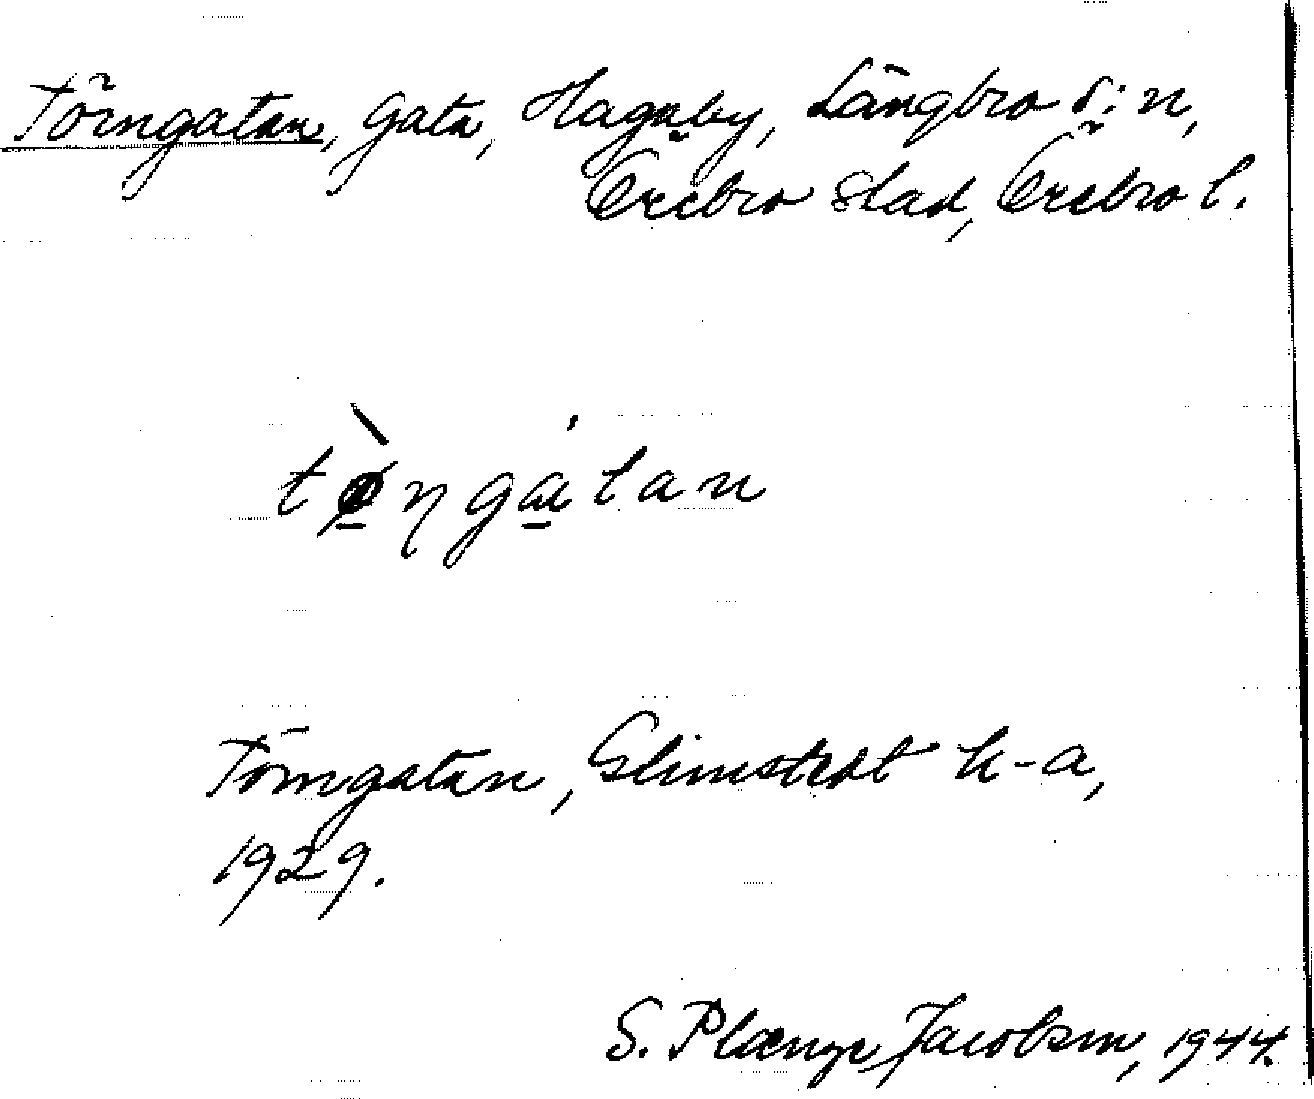 Törngatan, gata, Hagaby, Längbro s:n,
Örebro stad, Örebro l.
tø̀ŋgátan
Törngatan, Glimstedt k-a,
1929.
S. Plænge Jacobson, 1944.